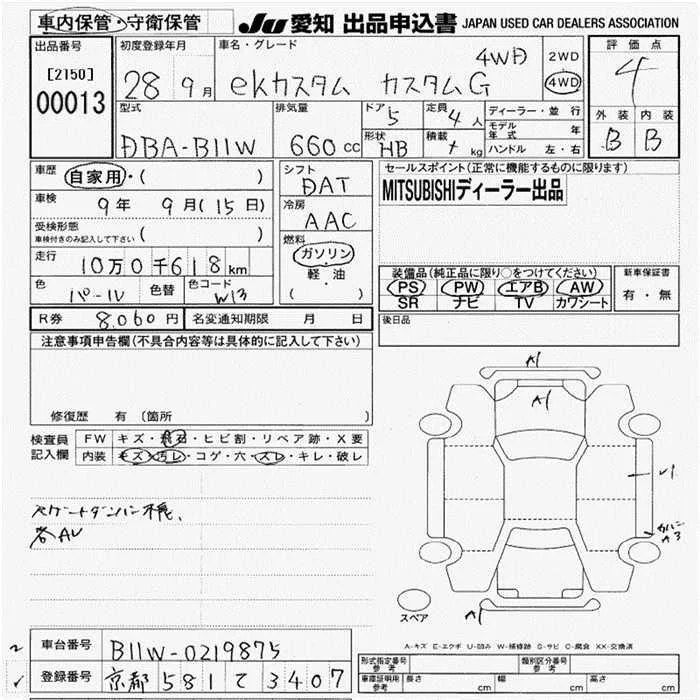 車内保管・守衛保管 JU 愛知 出品申込書 JAPAN USED CAR DEALERS ASSOCIATION
出品番号 初度登録年月 車名・グレード 評価点
[2150] 00013 28 9月 ekカスタム カスタムG 4WD 2WD 4WD 4
型式 排気量 ドア 5 定員 4人 ディーラー・並行 外装 内装
モデル年式 年
DBA-B11W 660cc 形状 HB 積載 kg ハンドル 左・右 B B
車歴 自家用・( ) シフト DAT セールスポイント(正常に機能するものに限ります)
MITSUBISHIディーラー出品
車検 9年 9月(15日) 冷房 AAC
受検形態 車検付きのみ記入して下さい ( )
燃料 ガソリン・軽・油 ( )
走行 10万0千618km
装備品(純正品に限り○をつけてください) 新車保証書
PS PW エアB AW 有・無
SR ナビ TV カワシート
色 パール 色替 色コード W13
R券 8,060円 名変通知期限 月 日 後日品
注意事項申告欄(不具合内容等は具体的に記入して下さい)
修復歴 有 (箇所 )
検査員記入欄 FW キズ・飛石・ヒビ割・リペア跡・X要
内装 キズ・汚レ・コゲ・穴・スレ・キレ・破レ
A1
A1
A3
A1
スペア
A-キズ E-エクボ U-凹み W-補修跡 S-サビ C-腐食 XX-交換済
車台番号 B11W-0219875
登録番号 京都 581 て 3407
形式指定番号 参考 類別区分番号 参考
車庫証明用 参考 長さ cm 幅 cm 高さ cm